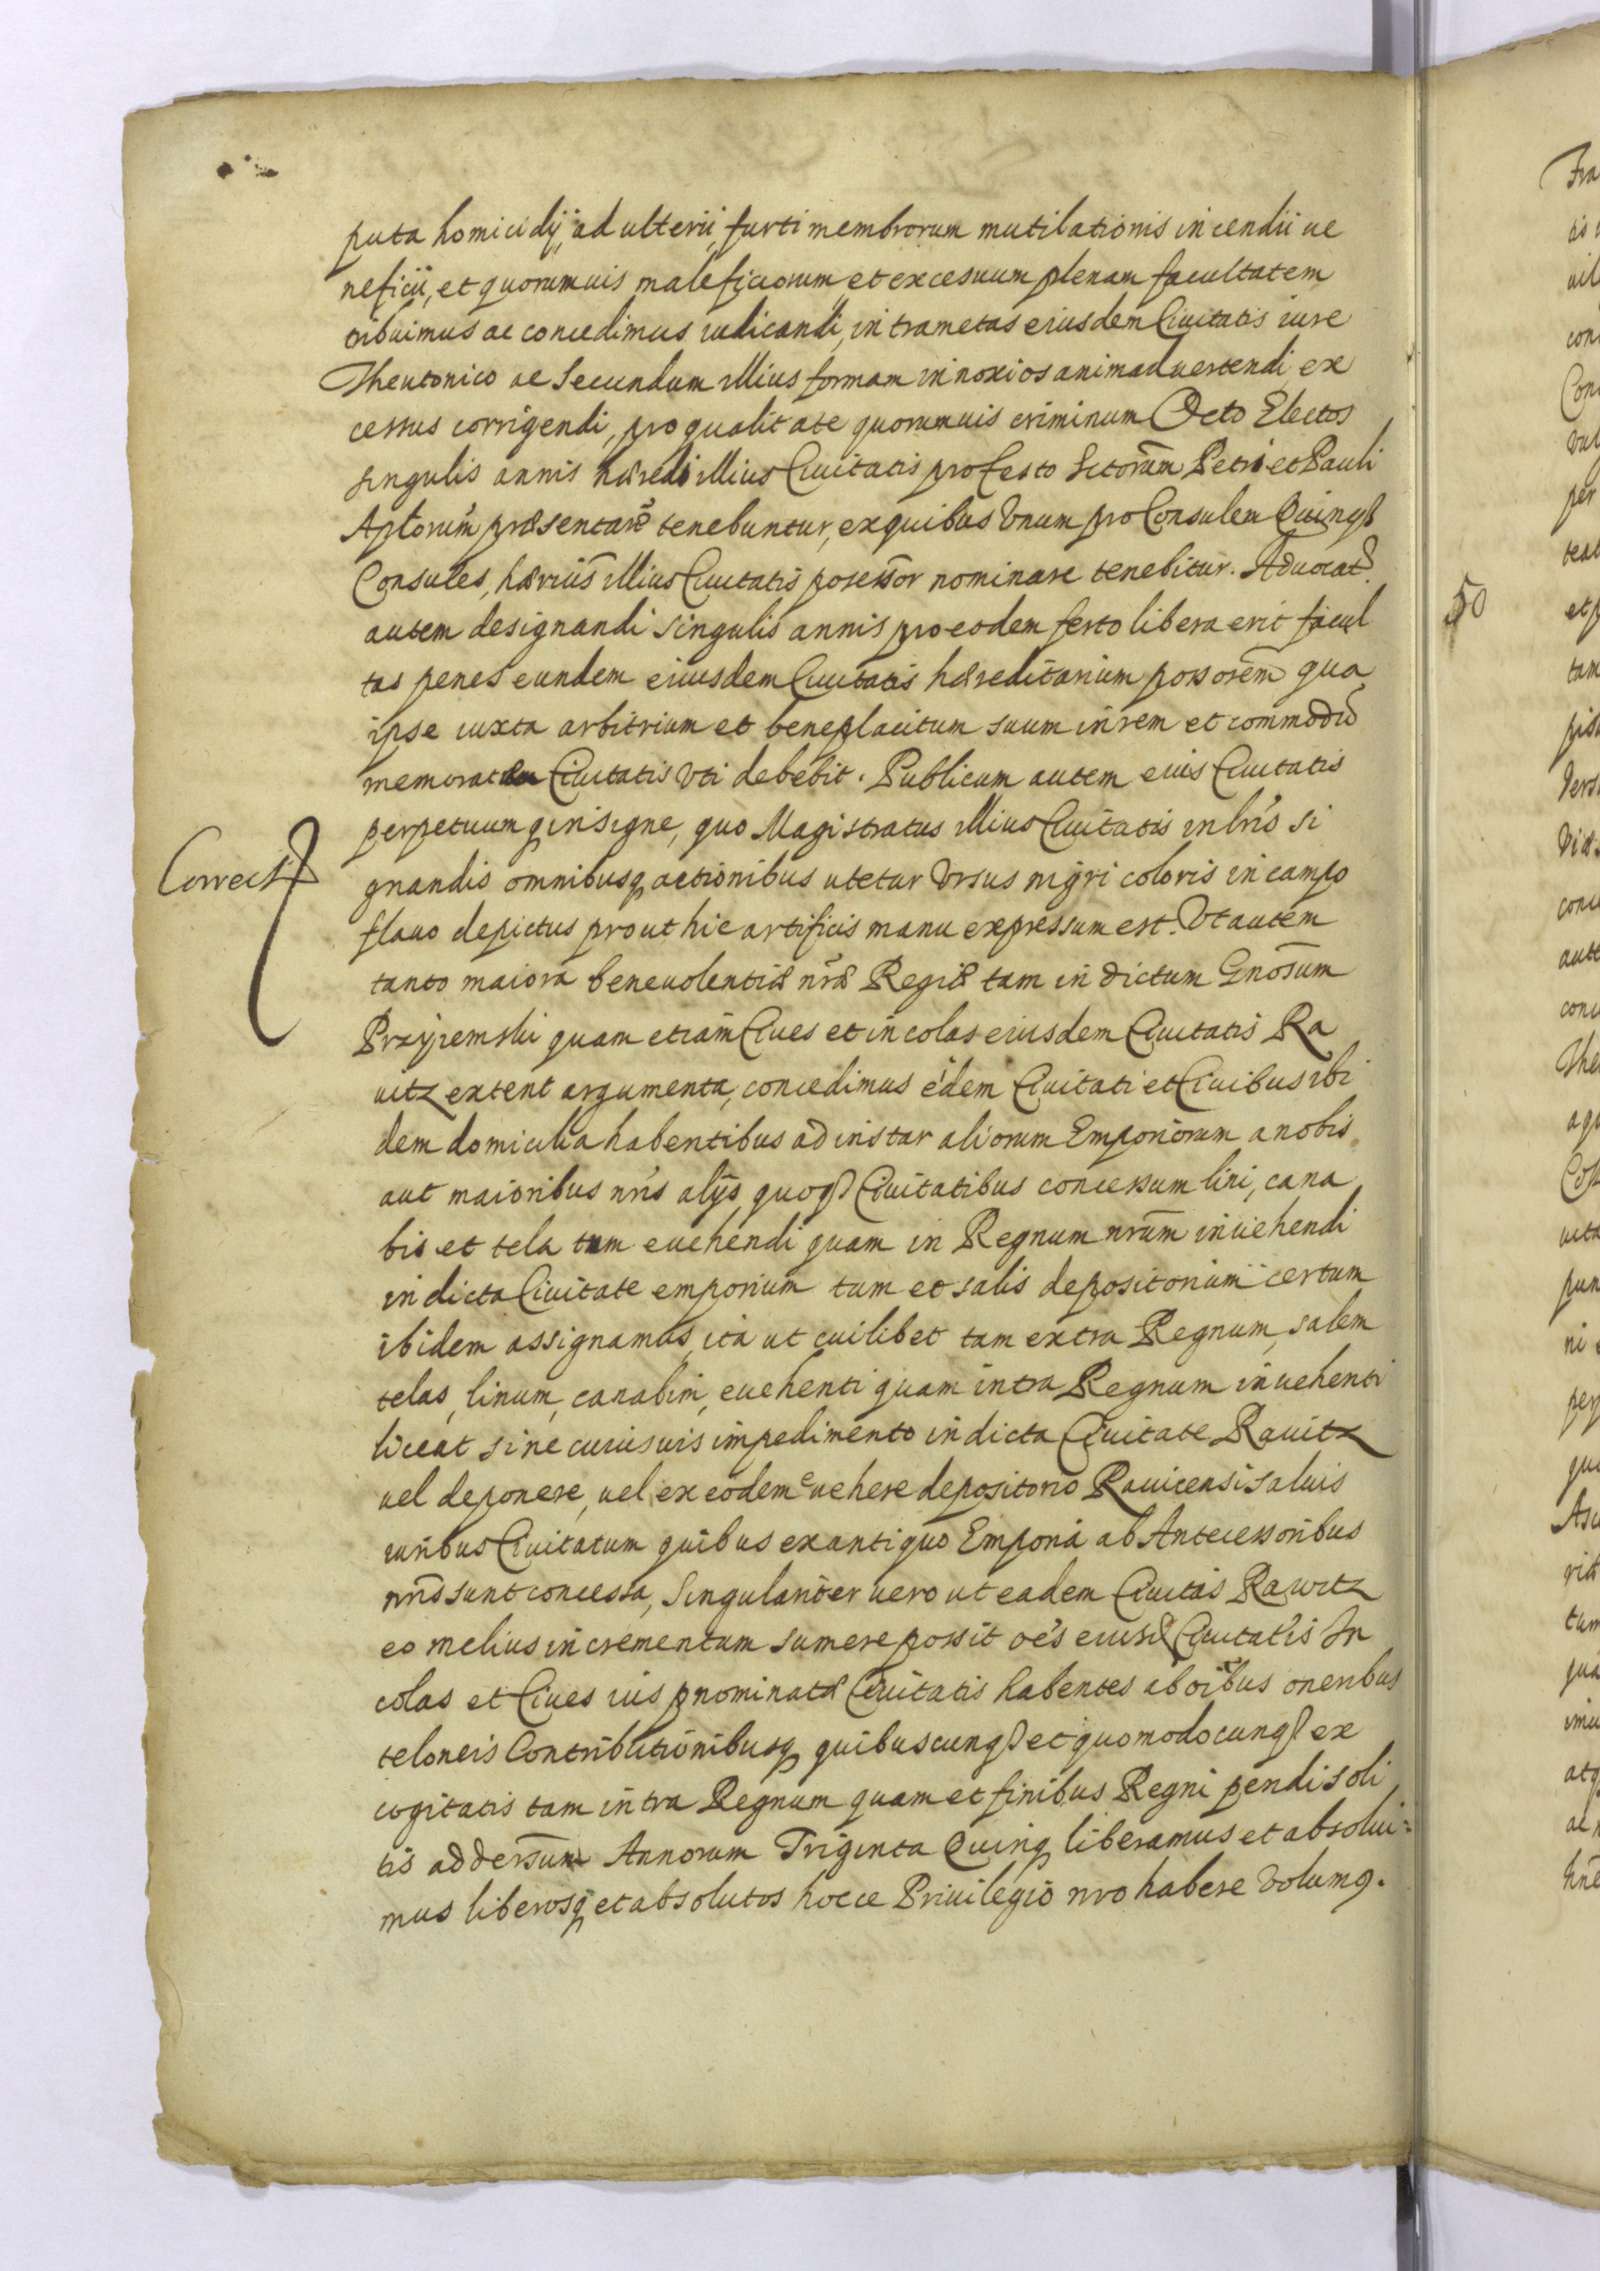 puta homicidÿ, adulterii, furti membrorum mutilationis incendii ue
neficii, et quorumuis maleficiorum et excesuum plenam facultatem
tribuimus ac concedimus iudicandi, intra metas eiusdem Ciuitatis iure
Theutonico ac Secundum illius formam in noxios animaduertendi ex
cessus corrigendi, pro qualitate quorumuis criminum Octo Electos
singulis annis hæredi illius Ciuitatis pro festo Sctorũm Petri et Pauli
Aplorũm præsentarẽ tenebuntur, ex quibus Vnum pro Consulem Quinqȝ
Consules, hærius̃ illius Ciuitatis possessor nominare tenebitur. Aduocat
autem designandi singulis annis pro eodem festo libera erit facul
tas penes eundem eiusdem Ciuitatis hæreditarium possorẽm qua
ipse iuxta arbitrium et beneplacitum suum in rem et commodũ
memoratæ Ciuitatis Vti debebit. Publicum autem eius Ciuitatis
perpetuumqȝ insigne, quo Magistratus illius Ciuitatis in lr̃is si
Correct
gnandis omnibusqȝ actionibus utetur Vrsus nigri coloris in campo
flauo depictus prout hic artificis manu expressum est. Vt autem
tanto maiora beneuolentiæ nr̃æ Regiæ tam in dictum Gnõsum
Przÿiemski quam etiam Ciues et incolas eiusdem Ciuitatis Ra
uitz extent argumenta, concedimus eidem Ciuitati et Ciuibus ibi
dem domicilia habentibus ad instar aliorum Emporiorum a nobis
aut maioribus nr̃is alÿs quoqȝ Ciuitatibus concessum lini, cana
bis et tela tum euehendi quam in Regnum nrũm inuehendi
in dicta Ciuitate emporium tum et salis depositorium certum
ibidem assignamus, ita ut cuilibet tam extra Regnum, salem
telas, linum, canabim, euehenti quam intra Regnum inuehenti
liceat sine cuiusuis impedimento in dicta Ciuitate Rauitz
uel deponere, uel ex eodem euehere depositorio Rauicensi saluis
iuribus Ciuitatum quibus ex antiquo Emporia ab Antecessoribus
nr̃is sunt concessa, Singulariter uero ut eadem Ciuitas Rawitz
eo melius incrementum sumere possit oẽs eiusd Ciuitatis In
colas et Ciues ius pnominatæ Ciuitatis habentes ab oĩbus oneribus
teloneis Contributionibusqȝ quibuscunqȝ et quomodocunqȝ ex
cogitatis tam intra Regnum quam et finibus Regni pendi soli
tis ad dersum Annorum Triginta Quinqȝ liberamus et absolui-
mus liberosqȝ et absolutos hocce Priuilegio nro habere Volumꝰ.
50